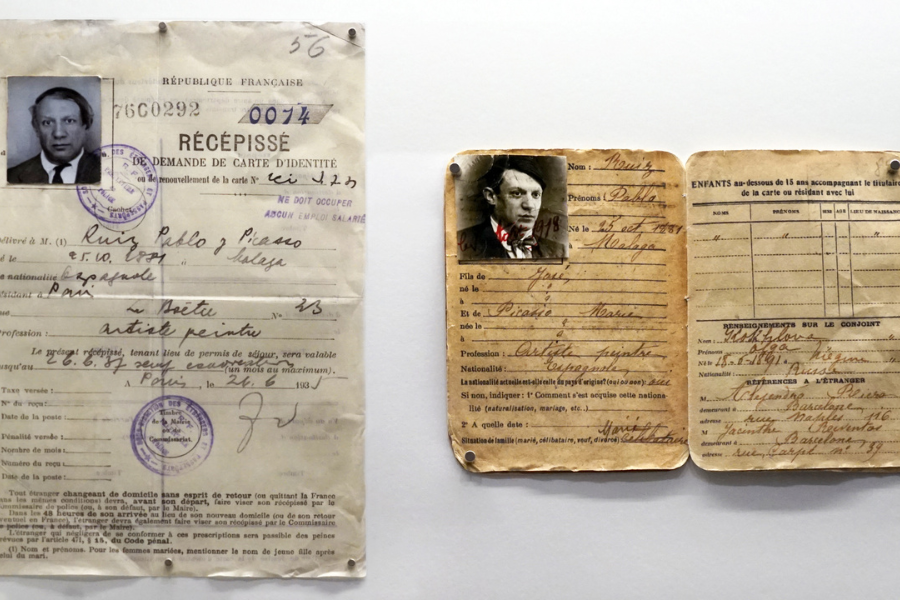 56
RÉPUBLIQUE FRANÇAISE
7600292
0014
RÉCÉPISSÉ
DE DEMANDE DE CARTE D'IDENTITÉ
ou de renouvellement de la carte N°
NE DOIT OCCUPER
AUCUN EMPLOI SALARIÉ
Cachet
élivré à M. (1) Ruiz Pablo y Picasso
é le 25.10.1881 à Malaga
e nationalité Espagnole
à Paris
La Boëtie N° 23
Profession : artiste peintre
Le présent récépissé, tenant lieu de permis de séjour, sera valable
usqu'au (un mois au maximum).
A Paris, le 26.6 193
Taxe versée :
N° du reçu :
Date de la poste :
Pénalité versée :
Nombre de mois :
Numéro du reçu :
Date de la poste :
Timbre
de la Mairie
ou du
Commissariat.
Tout étranger changeant de domicile sans esprit de retour (ou quittant la France
dans les mêmes conditions) devra, avant son départ, faire viser son récépissé par le
commissaire de police (ou, à son défaut, par le Maire).
Dans les 48 heures de son arrivée au lieu de son nouveau domicile (ou de son retour
éventuel en France), l'étranger devra également faire viser son récépissé par le Commissaire
de police (ou, à défaut, par le Maire).
L'étranger qui négligera de se conformer à ces prescriptions sera passible des peines
prévues par l'article 471, § 15, du Code pénal.
(1) Nom et prénoms. Pour les femmes mariées, mentionner le nom de jeune fille après
celui du mari.
Nom : Rouiz
Prénoms : Pablo
Né le 25 oct. 1881
à Malaga
Fils de José
né le
à
Et de Picasso Marie
née le
à
Profession : Artiste peintre
Nationalité : Espagnole
La nationalité actuelle est-elle celle du pays d'origine? (oui ou non) : oui
Si non, indiquer : 1° Comment s'est acquise cette nationa-
lité (naturalisation, mariage, etc.)
2° A quelle date :
Marié
Situation de famille (marié, célibataire, veuf, divorcé) Célibataire
ENFANTS au-dessous de 15 ans accompagnant le titulaire
de la carte ou résidant avec lui
NOMS PRÉNOMS SEXE AGE LIEU DE NAISSANCE
RENSEIGNEMENTS SUR LE CONJOINT
Nom : Kokhlova
Prénoms : Olga
Né le 18-6-1891 à Niégine
Nationalité : Russe
RÉFÉRENCES A L'ÉTRANGER
M. Alejandro
demeurant à Barcelone
adresse, rue Naples 116
M. Jacinthe Reventos
demeurant à Barcelone
adresse, rue n° 39